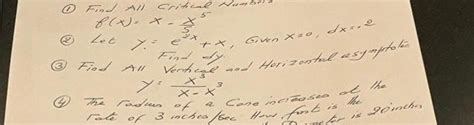 ① Find All Critical Numbers
f(x) = x - x^5
② Let y = e^{3x} + x, Given x=0, dx=.2
Find dy
③ Find All Vertical and Horizontal asymptotic
y = x^3 / x - x^3
④ The radius of a Cone increases at the
rate of 3 inches/sec. How fast is the
is 20 inches